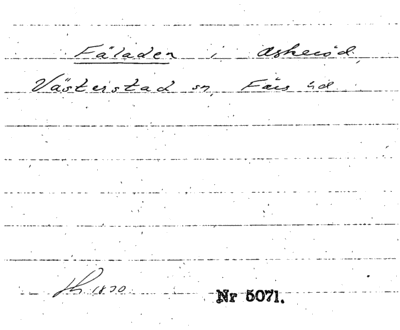 Fåladen i Askeröd,
Västerstad sn, Färs hd
1820
Nr 5071.